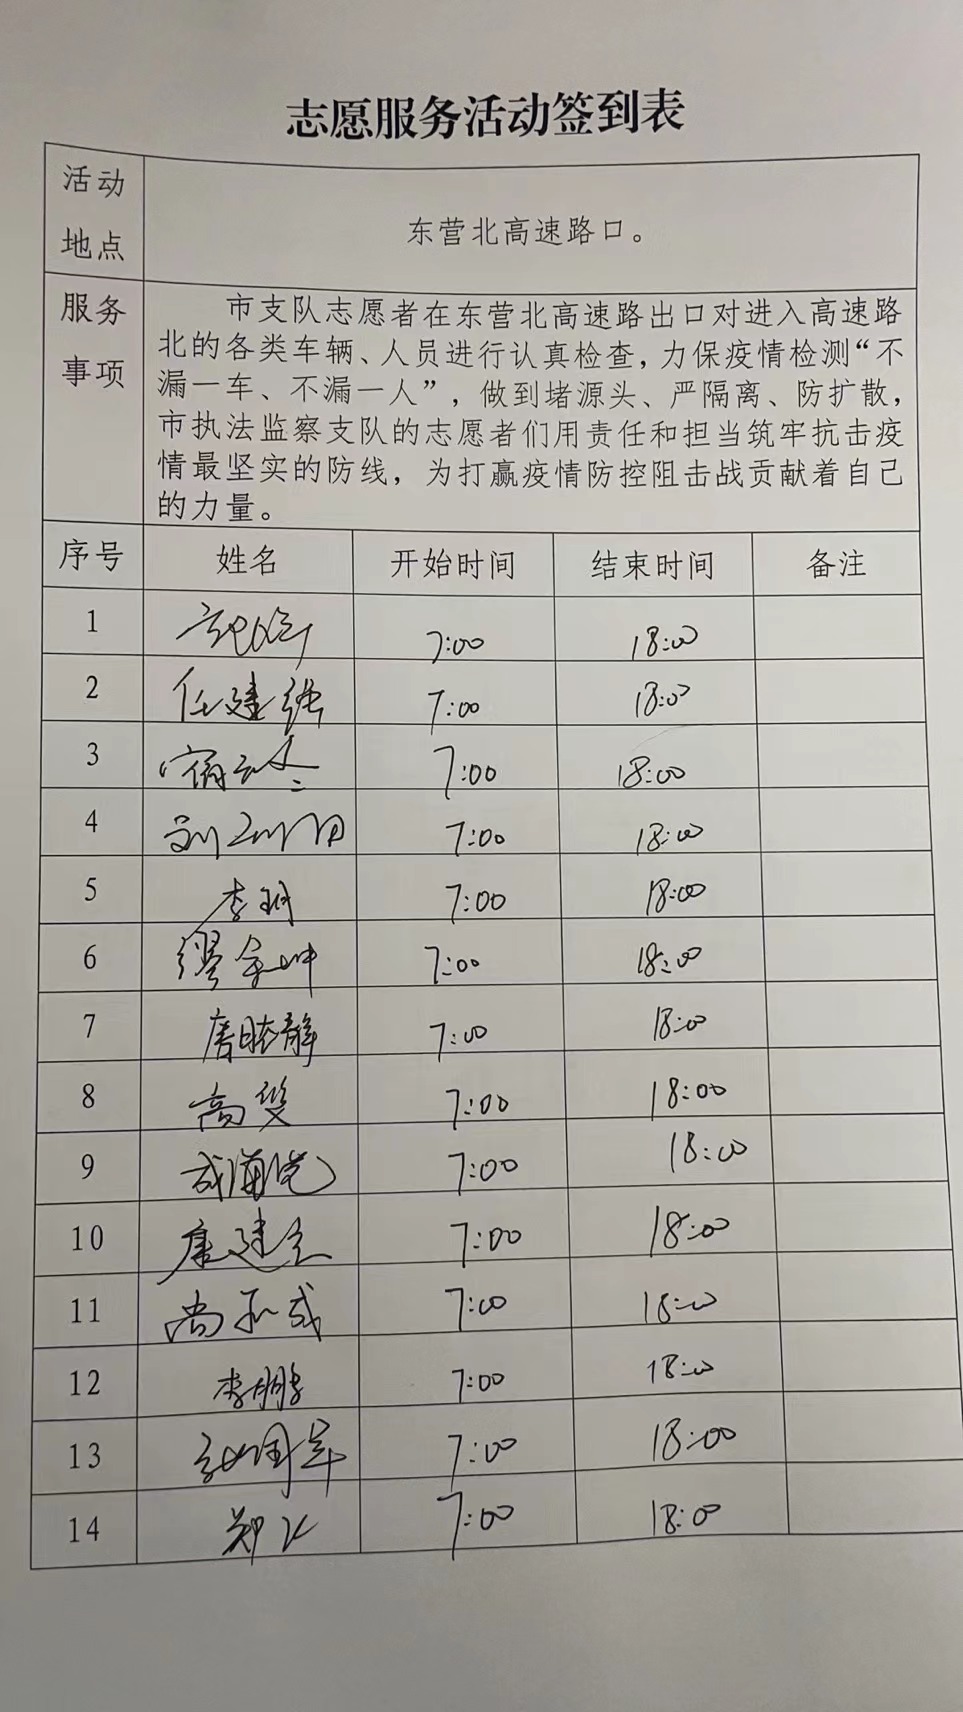 志愿服务活动签到表
活动
地点
东营北高速路口。
服务
事项
市支队志愿者在东营北高速路出口对进入高速路
北的各类车辆、人员进行认真检查，力保疫情检测“不
漏一车、不漏一人”，做到堵源头、严隔离、防扩散，
市执法监察支队的志愿者们用责任和担当筑牢抗击疫
情最坚实的防线，为打赢疫情防控阻击战贡献着自己
的力量。
序号 姓名 开始时间 结束时间 备注
1 7:00 18:00
2 任建强 7:00 18:00
3 7:00 18:00
4 7:00 18:00
5 李明 7:00 18:00
6 7:00 18:00
7 唐晓静 7:00 18:00
8 高雙 7:00 18:00
9 成海港 7:00 18:00
10 康建立 7:00 18:00
11 尚孔成 7:00 18:00
12 李鹏 7:00 18:00
13 7:00 18:00
14 7:00 18:00